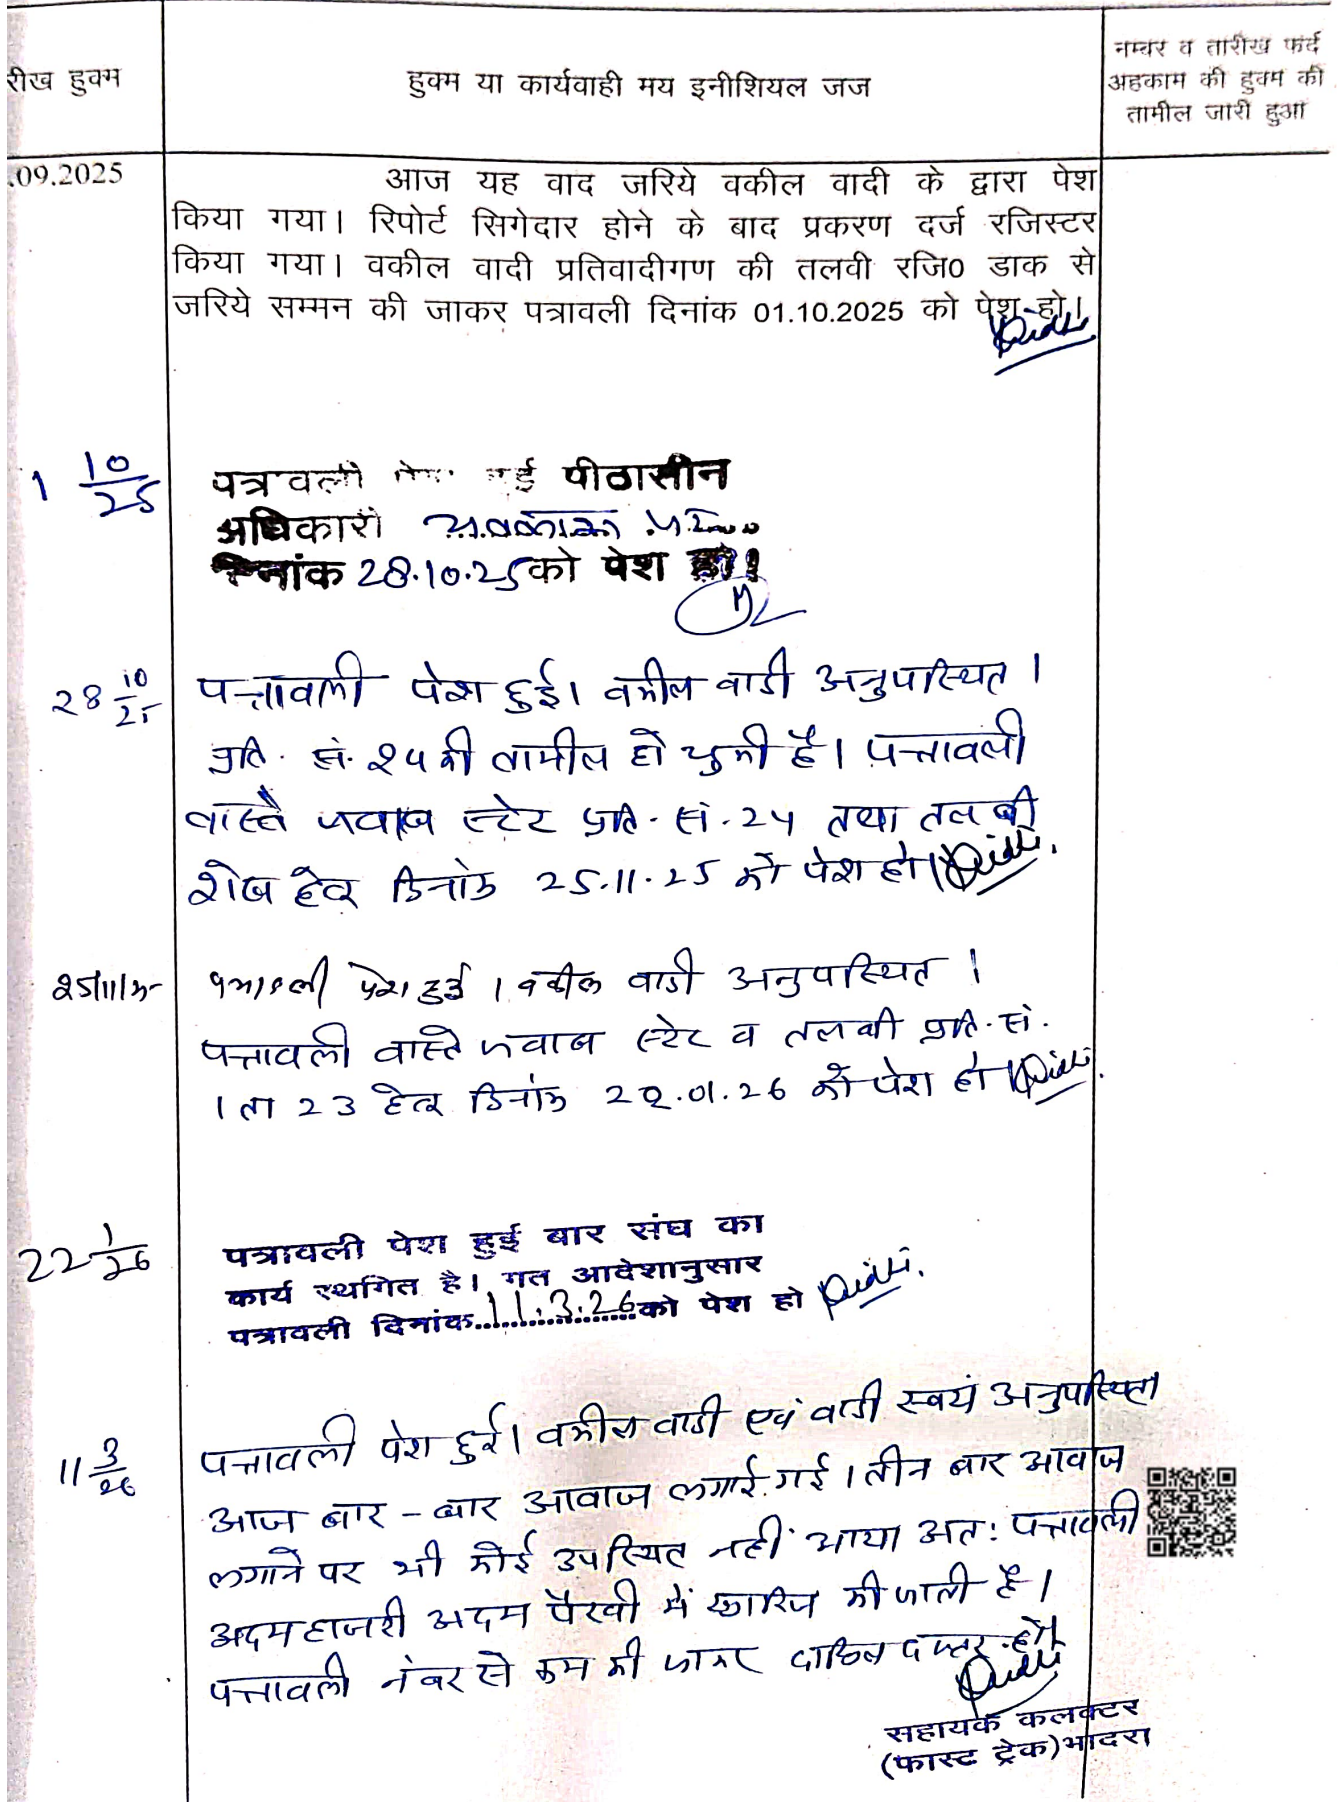 रीख हुक्म
हुक्म या कार्यवाही मय इनीशियल जज
नम्बर व तारीख फर्द
अहकाम की हुक्म की
तामील जारी हुआ
.09.2025
आज यह वाद जरिये वकील वादी के द्वारा पेश
किया गया। रिपोर्ट सिगेदार होने के बाद प्रकरण दर्ज रजिस्टर
किया गया। वकील वादी प्रतिवादीगण की तलवी रजि0 डाक से
जरिये सम्मन की जाकर पत्रावली दिनांक 01.10.2025 को पेश हो।
1 10/25
पत्रावली पेश हुई पीठासीन
अधिकारी अवकाश पर
दिनांक 28.10.25 को पेश हो।
28 10/25
पत्रावली पेश हुई। वकील वादी अनुपस्थित।
प्रति. सं. 24 की तामील हो चुकी है। पत्रावली
वास्ते जवाब स्टेट प्रति. सं. 24 तथा तलबी
शेष हेतु दिनांक 25.11.25 को पेश हो।
25/11/25
पत्रावली पेश हुई। वकील वादी अनुपस्थित।
पत्रावली वास्ते जवाब स्टेट व तलबी प्रति. सं.
1 ता 23 हेतु दिनांक 22.01.26 को पेश हो
22 1/26
पत्रावली पेश हुई बार संघ का
कार्य स्थगित है। गत आदेशानुसार
पत्रावली दिनांक 11.3.26 को पेश हो
11 3/26
पत्रावली पेश हुई। वकील वादी एवं वादी स्वयं अनुपस्थित
आज बार-बार आवाज लगाई गई। तीन बार आवाज
लगाने पर भी कोई उपस्थित नहीं आया अतः पत्रावली
अदम हाजरी अदम पैरवी में खारिज की जाती है।
पत्रावली नंबर से कम की जाकर दाखिल दफ्तर हो।
सहायक कलक्टर
(फास्ट ट्रेक) भादरा